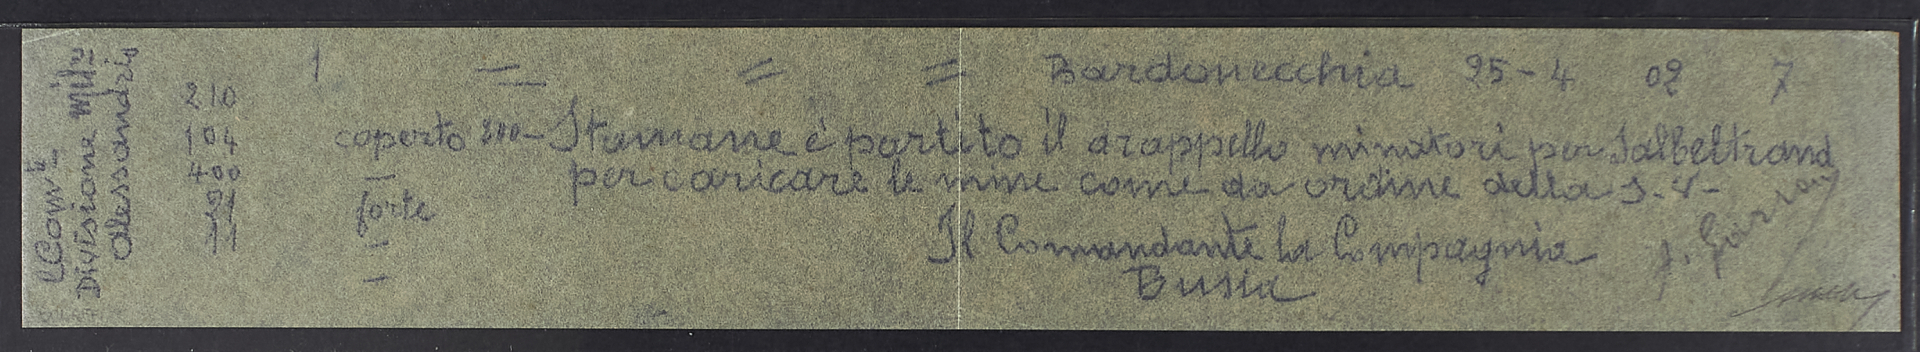 Divisione
Alessandria
210
104
400
21
11
1 = = = Bardonecchia 25-4 02 7
coperto 200- Stamane è partito il drappello minatori per Salbeltrand
— per caricare le mine come da ordine della S.V-
forte
— Il Comandante la Compagnia
— Busia